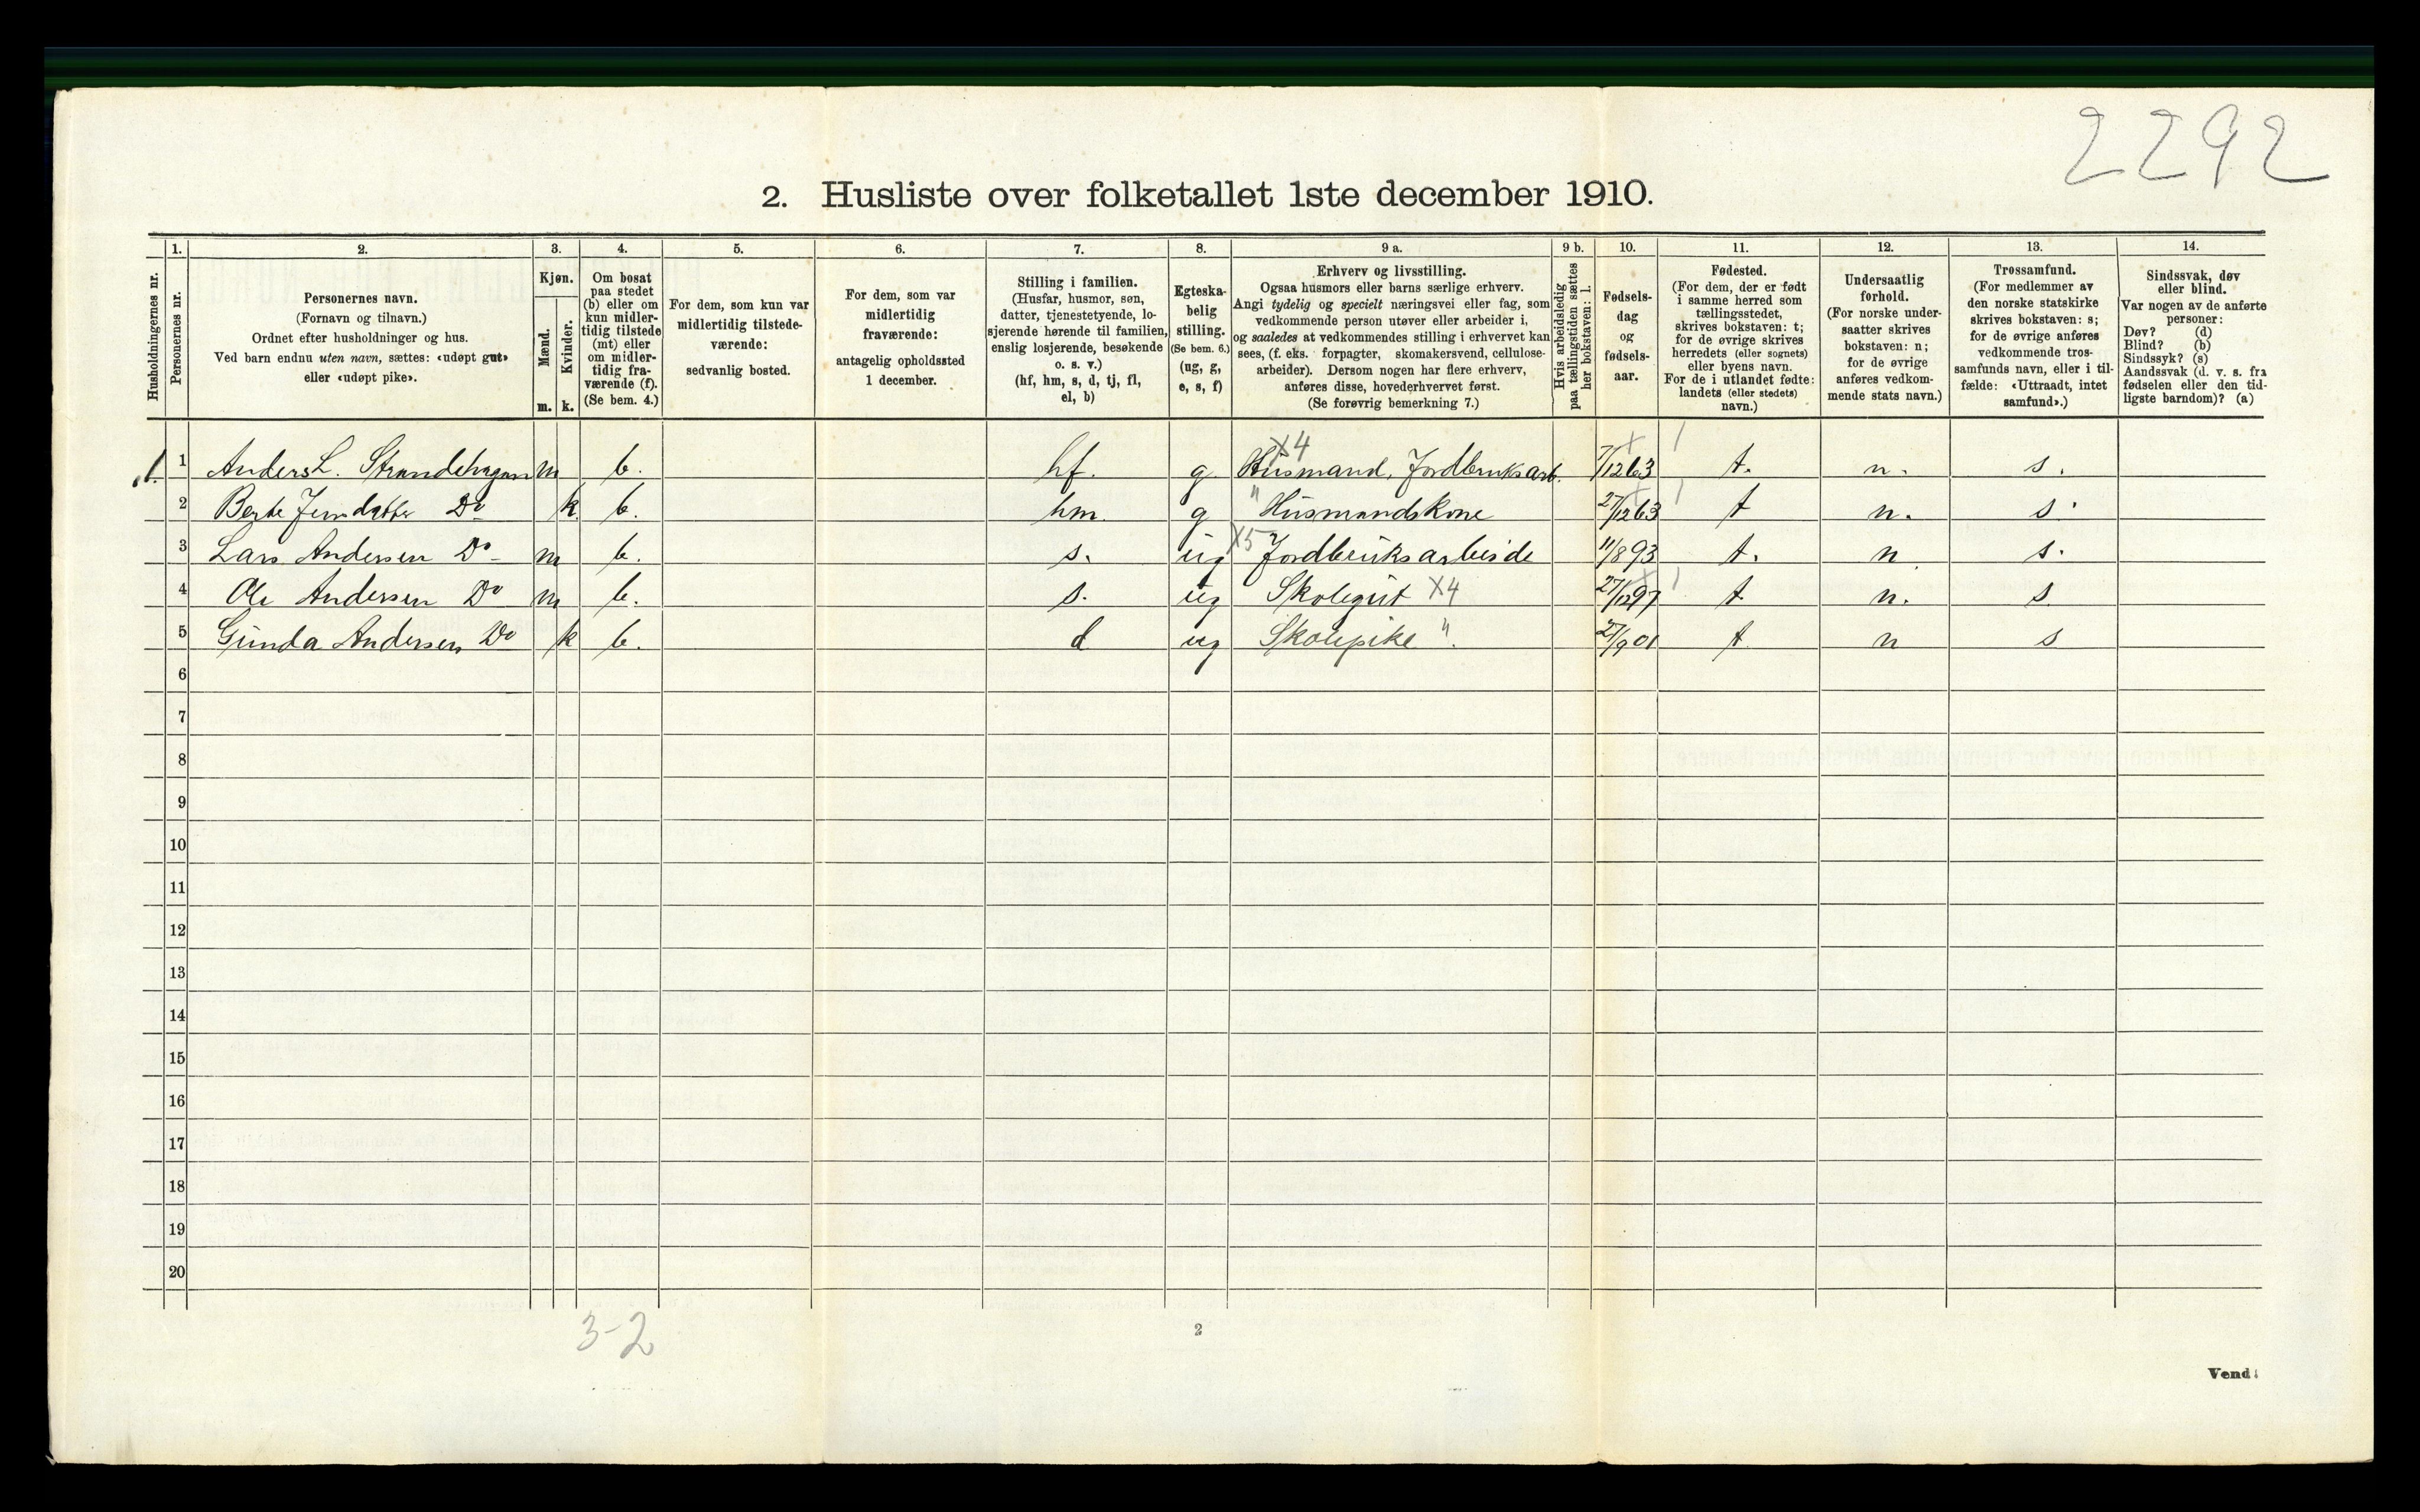 2292
2. Husliste over folketallet 1ste december 1910.
Husholdningernes nr.
1.
Personernes nr.
2.
Personernes navn.
(Fornavn og tilnavn.)
Ordnet efter husholdninger og hus.
Ved barn endnu uten navn, sættes: «udøpt gut»
eller «udøpt pike».
3.
Kjøn.
Mænd.
Kvinder.
m. k.
4.
Om bosat
paa stedet
(b) eller om
kun midler-
tidig tilstede
(mt) eller
om midler-
tidig fra-
værende (f).
(Se bem. 4.)
5.
For dem, som kun var
midlertidig tilstede-
værende:
sedvanlig bosted.
6.
For dem, som var
midlertidig
fraværende:
antagelig opholdssted
1 december.
7.
Stilling i familien.
(Husfar, husmor, søn,
datter, tjenestetyende, lo-
sjerende hørende til familien,
enslig losjerende, besøkende
o. s. v.)
(hf, hm, s, d, tj, fl,
el, b)
8.
Egteska-
belig
stilling.
(Se bem. 6.)
(ug, g,
e, s, f)
9 a.
Erhverv og livsstilling.
Ogsaa husmors eller barns særlige erhverv.
Angi tydelig og specielt næringsvei eller fag, som
vedkommende person utøver eller arbeider i,
og saaledes at vedkommendes stilling i erhvervet kan
sees, (f. eks. forpagter, skomakersvend, cellulose-
arbeider). Dersom nogen har flere erhverv,
anføres disse, hovederhvervet først.
(Se forøvrig bemerkning 7.)
9 b.
Hvis arbeidsledig
paa tællingstiden sættes
her bokstaven: l.
10.
Fødsels-
dag
og
fødsels-
aar.
11.
Fødested.
(For dem, der er født
i samme herred som
tællingsstedet,
skrives bokstaven: t;
for de øvrige skrives
herredets (eller sognets)
eller byens navn.
For de i utlandet fødte:
landets (eller stedets)
navn.)
12.
Undersaatlig
forhold.
(For norske under-
saatter skrives
bokstaven: n;
for de øvrige
anføres vedkom-
mende stats navn.)
13.
Trossamfund.
(For medlemmer av
den norske statskirke
skrives bokstaven: s;
for de øvrige anføres
vedkommende tros-
samfunds navn, eller i til-
fælde: «Uttraadt, intet
samfund».)
14.
Sindssvak, døv
eller blind.
Var nogen av de anførte
personer:
Døv? (d)
Blind? (b)
Sindssyk? (s)
Aandssvak (d. v. s. fra
fødselen eller den tid-
ligste barndom)? (a)
1. 1 Anders L. Strandehagen m b. hf. g X4 Husmand, Jordbruksarb. 7/12 63 t. n. s.
2 Berte Jensdatter Do k b. hm. g " Husmandskone 27/12 63 t n. s
3 Lars Andersen Do m b. s. ug X5 Jordbruksarbeide 11/8 93 t. n s.
4 Ole Andersen Do m b. s. ug Skolegut X4 27/12 97 t n. s
5 Gunda Andersen Do k b. d ug Skolepike ". 27/9 01 t n s
6
7
8
9
10
11
12
13
14
15
16
17
18
19
20
3-2
2
Vend!